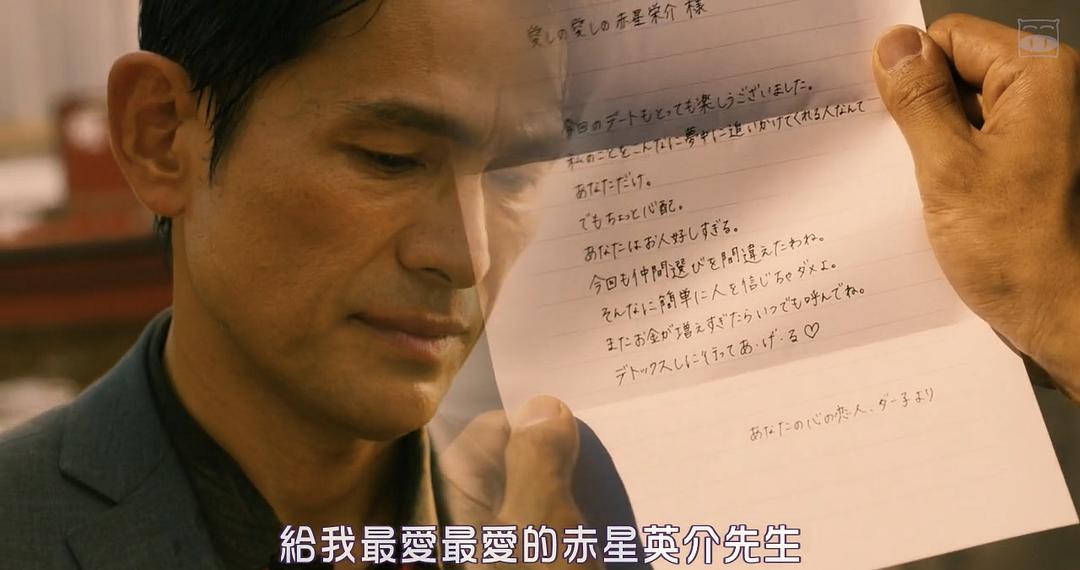 愛しの愛しの赤星栄介 様
今回のデートもとっても楽しうございました。
私のことをこんなに夢中に追いかけてくれる人なんて
あなただけ。
でもちょっと心配。
あなたはお人好しすぎる。
今回も仲間選びを間違えたわね。
そんなに簡単に人を信じちゃダメよ。
またお金が増えすぎたらいつでも呼んでね。
デトックスしに行ってあ・げ・る♡
あなたの心の恋人、ダー子より
給我最愛最愛的赤星英介先生